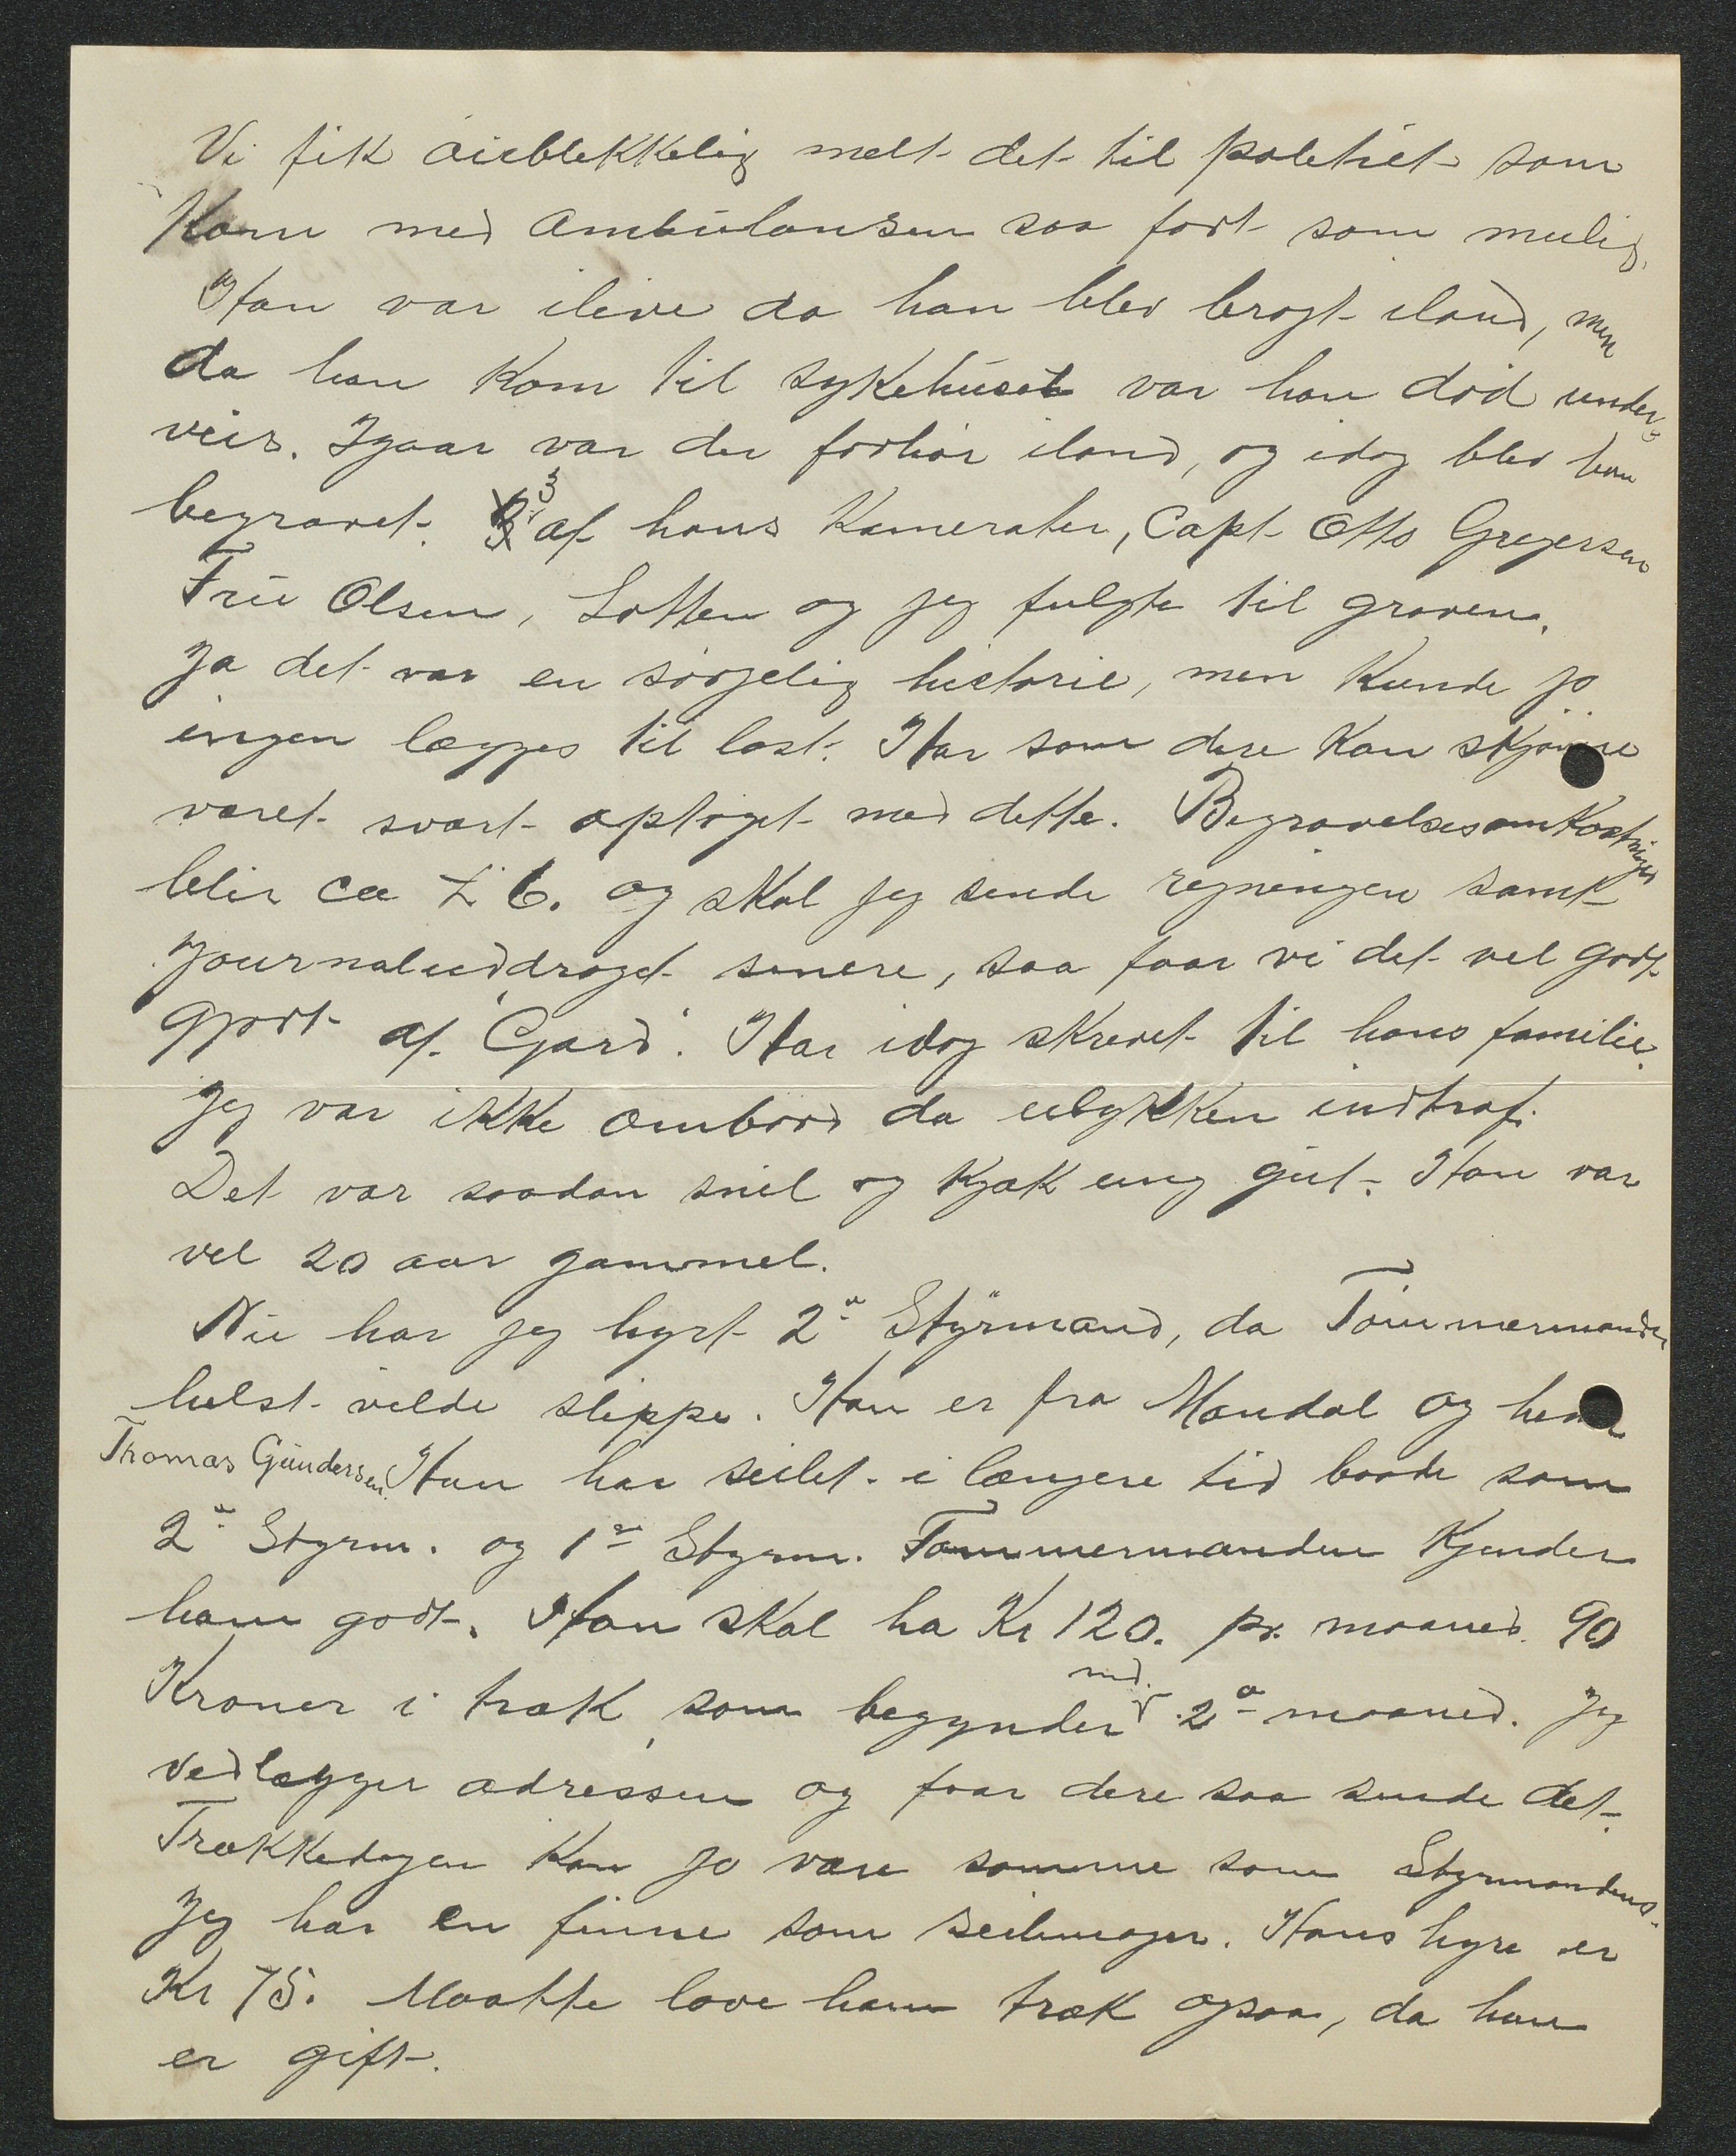 Vi fik øieblekkelig melt det til politiet som
Kom med Ambulansen saa fort som mulig.
Han var ilive da han blev bragt iland, men
da han kom til sykehuset var han død under-
veis. Igaar var der forhør iland, og idag blev han
begravet. 3 af hans Kamerater, Capt Otto Gregersen
Fru Olsen, Lotten og jeg fulgte til graven.
Ja det var en sørgelig historie, men kunde jo
ingen lægges til last. Har som dere kan skjønne
været svært optaget med dette. Begravelsesomkostninger
blir ca £ 6. og skal jeg sende regningen samt
Journaluddraget senere, saa faar vi det vel godt-
gjort af "Gard". Har idag skrevet til hans familie.
Jeg var ikke ombord da ulykken indtraf.
Det var saadan snil og kjæk ung gut. Han var
vel 20 aar gammel.
Nu har jeg hyrt 2den Styrmand, da Tømmermanden
helst vilde slippe. Han er fra Mandal og heder
Thomas Gundersen. Han har seilet i længere tid baade som
2den Styrm. og 1ste Styrm. Tømmermanden Kjender
ham godt. Han skal ha Kr 120. pr. maaned. 90
Kroner i træk, som begynder md. 2den maaned. Jeg
vedlægger adressen og faar dere saa sende det.
Trækkedagen kan jo være samme som Styrmandens.
Jeg har en finne som seilmager. Hans hyre er
Kr 75. Maatte love ham træk ogsaa, da han
er gift.